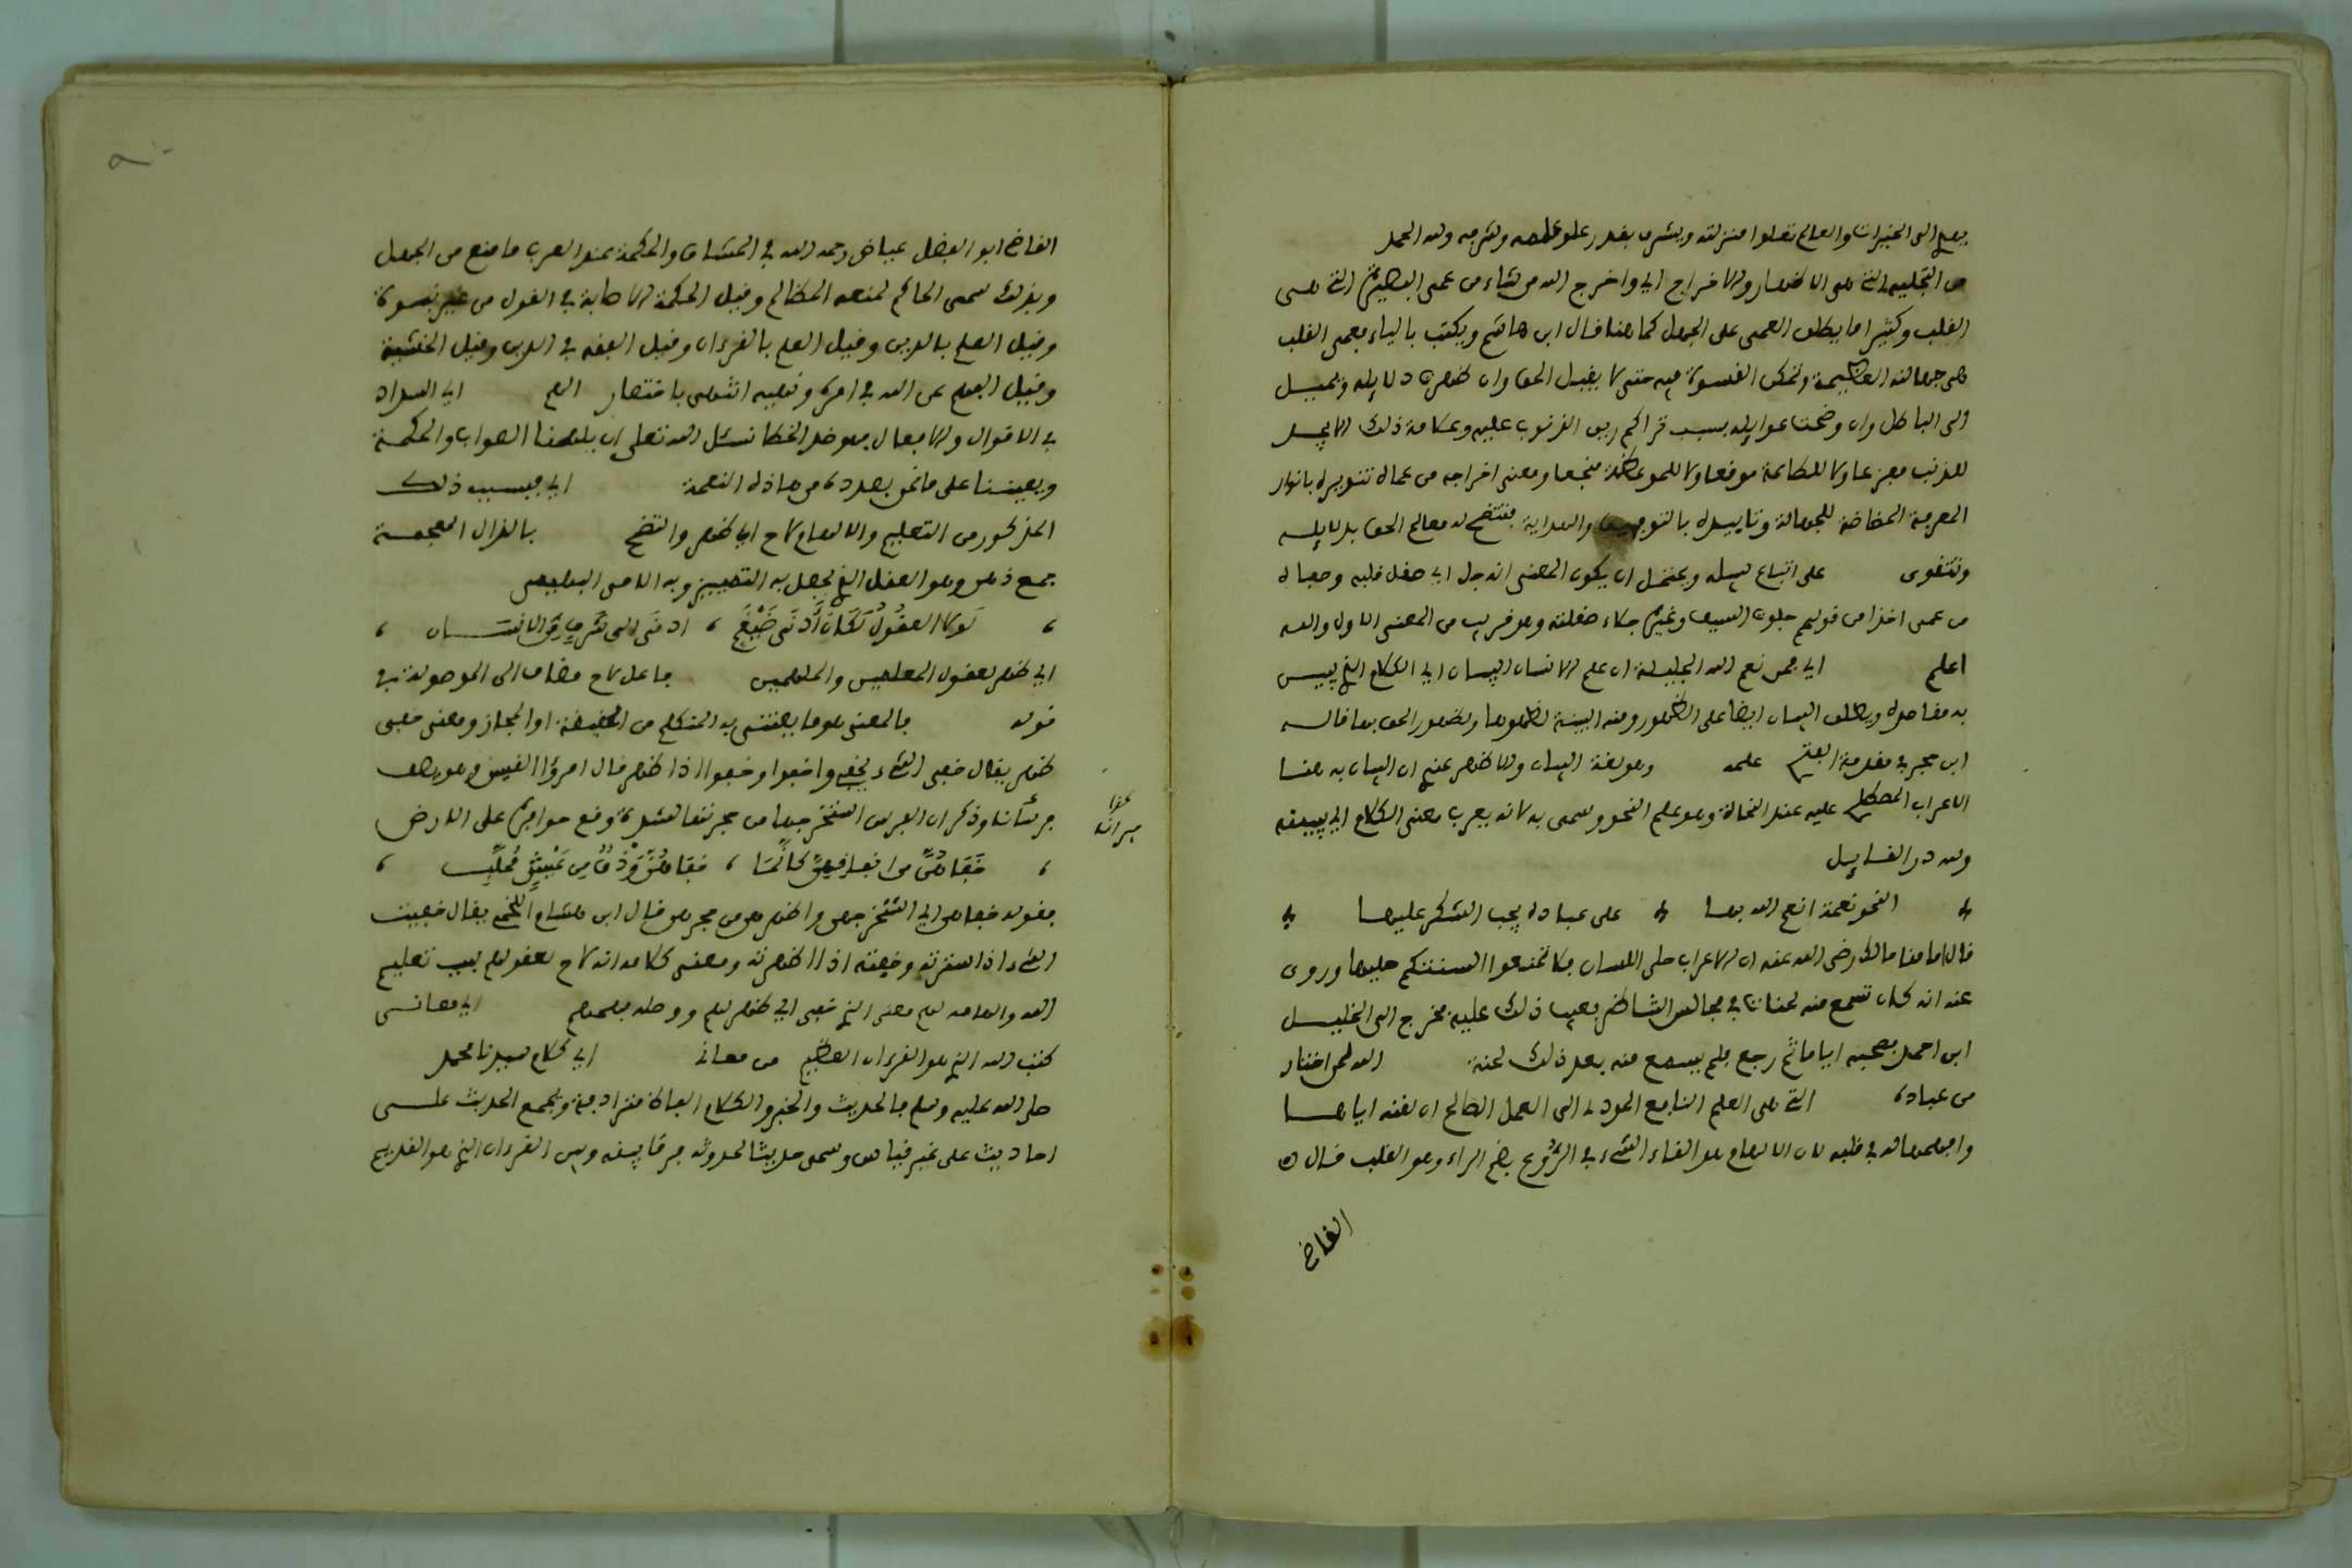 الى الخيرات والعالم تعلوا منزلته ويشرف بقدر علو علمه وشرفه ولله الحمد
من التجلية التي هي الاظهار والاخراج اي واخرج الله من شاء من عمى البصيرة التي هي
القلب وكثيرا ما يطلق العمى على الجهل كما هنا قال ابن هاشم ويكتب بالياء فعمى القلب
هي جهالته العظيمة وتمكن القسوة فيه حتى لا يقبل الحق وان ظهرت دلايله ويميل
الى الباطل وان وضحت غوايله بسبب تراكم رين الذنوب عليه وعلامة ذلك الا يجد
للذنب مفزعا ولا للطاعة موقعا ولا للموعظة منجعا ومعنى اخراجه من عماه تنويره بانوار
المعرفة المضادة للجهالة وتاييده بالتوفيق والهداية فتتضح له معالم الحق بدلايله
وتتقوى على اتباع سبيله ويحتمل ان يكون المعنى انه جل اي صقل قلبه وصفاه
من عمى اخذا من قولهم جلوت السيف وغيره جلاء صقلته وهو قريب من المعنى الاول والله
اعلم اي فمن نعم الله الجليلة ان علم الانسان البيان اي الكلام الذي يبين
به مقاصده ويطلق البيان ايضا على الظهور ومنه البينة لظهورها وظهور الحق بها قاله
ابن حجر في مقدمة الفتح علمه وهو لغة البيان والاظهر عندي ان البيان به هنا
الاعراب المصطلح عليه عند النحاة وهو علم النحو وسمي به لانه يعرب معنى الكلام اي يبينه
ولله در القايل
النحو نعمة انعم الله بها على عباده يجب الشكر عليها
قال امامنا مالك رضي الله عنه ان الاعراب حلي اللسان فلا تمنعوا السنتكم حليها وروي
عنه انه كان تسمع منه لحنات في مجالس الشاطر فعيب ذلك عليه فخرج الى الخليل
ابن احمد فصحبه اياما ثم رجع فلم يسمع منه بعد ذلك لحنة الله لمن اختار
من عباده التي هي العلم النافع المودي الى العمل الصالح ان لقنه اياها
وافهمها له في قلبه لان الالهام هو القاء الشيء في الروع بضم الراء وهو القلب قال
القاضي
القاضي ابو الفضل عياض رحمه الله في المشارق والحكمة عند العرب ما منع من الجهل
وبذلك سمي الحاكم لمنعه المظالم وقيل الحكمة الاصابة في القول من غير نبوة
وقيل العلم بالدين وقيل العلم بالقرءان وقيل الفقه في الدين وقيل الخشية
وقيل الفهم عن الله في امره ونهيه انتهى باختصار اللهم اي السداد
في الاقوال والافعال فهو ضد الخطا نسئل الله تعلى ان يلهمنا الصواب والحكمة
ويعيننا على ما نحن بصدده من هاذه النعمة اي فبسبب ذلك
المذكور من التعليم والالهام لاح اي ظهر واتضح بالذال المعجمة
جمع ذهن وهو العقل الذي يحصل به التمييز وبه الامي البليغ
لولا العقول لكان ادنى ضيغم ادنى الى شرف من الانسان
اي ظهر لعقول المعلمين والملهمين فاعل لاح مضاف الى الموصولة في
قوله فالمعنى هو ما يعتني به المتكلم من الحقيقة او المجاز ومعنى خفي
ظهر يقال خفى الشيء يخفيه واخفوا وخفوا اذا ظهر قال امرؤ القيس وهو يصف
فرسا وذكر ان الفرس استخرجها من جحرتها لشدة وقع حوافره على الارض
خفاهن من انفاقهن كانما خفاهن ودق من عشي مجلب
فقوله خفاهن اي استخرجهن واظهرهن من جحرهن قال ابن هشام اللخمي يقال خفيت
الشيء اذا سترته وخفيته اذا اظهرته ومعنى كلامه انه لاح لعقولهم بسبب تعليم
الله والهامه لهم معنى الذي خفي اي ظهر لهم ووصله فهمهم اي معاني
كتب الله الذي هو القرءان العظيم من معاني اي كلام سيدنا محمد
صلى الله عليه وسلم فالحديث والخبر والكلام الفاظ مترادفة ويجمع الحديث على
احاديث على غير قياس وسمي حديثا لحدوثه فرقا بينه وبين القرءان الذي هو القديم